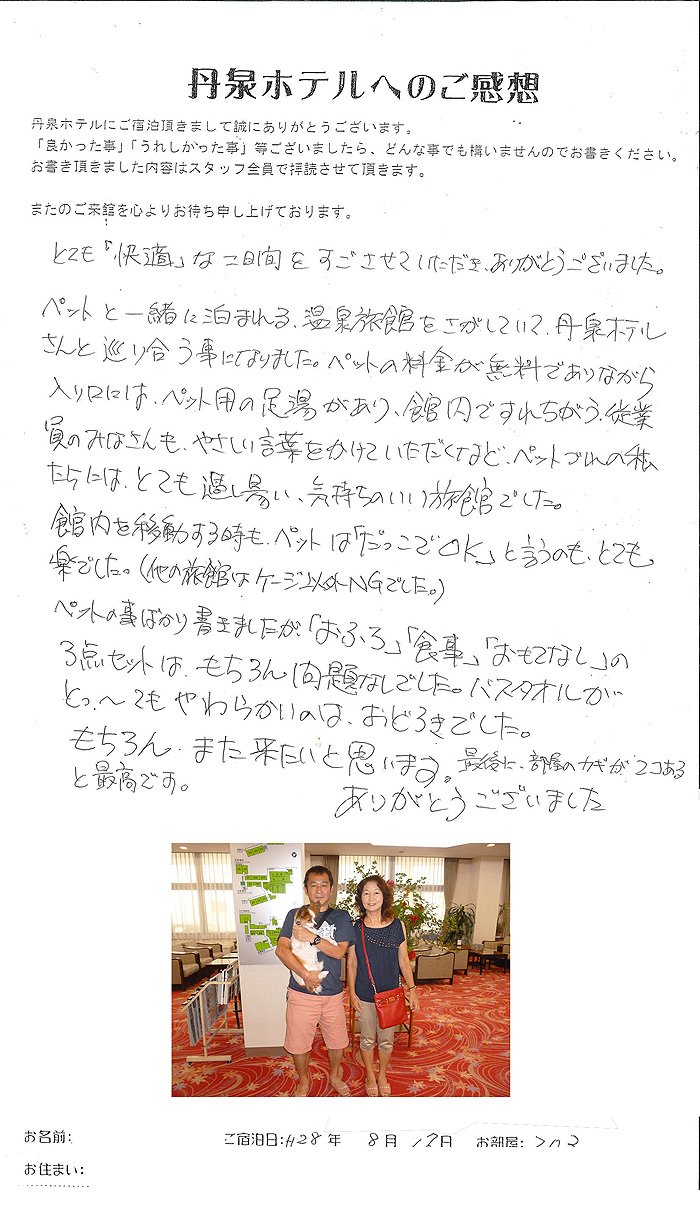 丹泉ホテルへのご感想
丹泉ホテルにご宿泊頂きまして誠にありがとうございます。
「良かった事」「うれしかった事」等ございましたら、どんな事でも構いませんのでお書きください。
お書き頂きました内容はスタッフ全員で拝読させて頂きます。
またのご来館を心よりお待ち申し上げております。
とても「快適」な二日間をすごさせていただき、ありがとうございました。
ペットと一緒に泊まれる、温泉旅館をさがしていて、丹泉ホテル
さんと巡り合う事になりました。ペットの料金が無料でありながら
入り口には、ペット用の足湯があり、館内ですれちがう、従業
員のみなさんも、やさしい言葉をかけていただくなど、ペットづれの私
たちには、とても過し易い、気持ちのいい旅館でした。
館内を移動する時も、ペットは「だっこでOK」と言うのも、とても
楽でした。(他の旅館はケージ以外NGでした。)
ペットの事ばかり書きましたが、「おふろ」「食事」「おもてなし」の
3点セットは、もちろん問題なしでした。バスタオルが
とっ〜てもやわらかいのは、おどろきでした。
もちろん、また来たいと思います。最後に、部屋のカギが2コある
と最高です。
ありがとうございました
お名前:
ご宿泊日:H28年 8月 17日 お部屋:
お住まい: